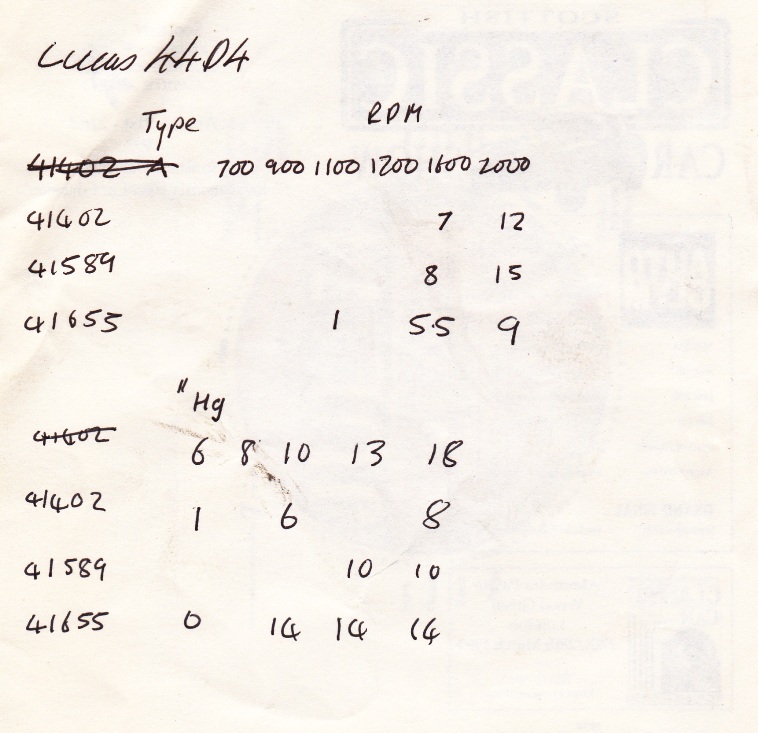 Lucas 44D4
Type RPM
41402 A 700 900 1100 1200 1600 2000
41402 7 12
41589 8 15
41655 1 5.5 9
"Hg
41402 6 8 10 13 18
41402 1 6 8
41589 10 10
41655 0 14 14 14